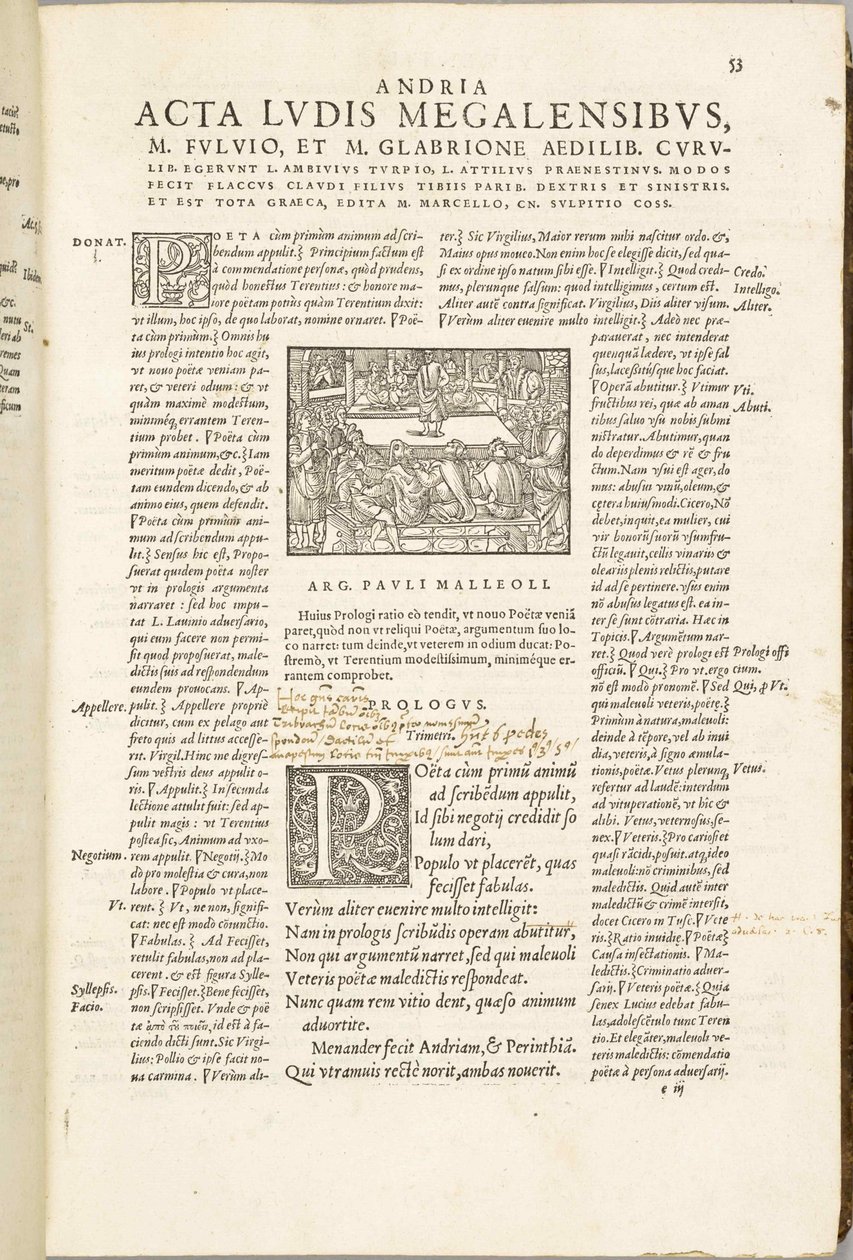 53
ANDRIA
ACTA LVDIS MEGALENSIBVS,
M. FVLVIO, ET M. GLABRIONE AEDILIB. CVRV-
LIB. EGERVNT L. AMBIVIVS TVRPIO, L. ATTILIVS PRAENESTINVS. MODOS
FECIT FLACCVS CLAVDI FILIVS TIBIIS PARIB. DEXTRIS ET SINISTRIS.
ET EST TOTA GRAECA, EDITA M. MARCELLO, CN. SVLPITIO COSS.
DONAT.
POETA cùm primùm animum ad scri-
bendum appulit.} Principium factum est
à commendatione personæ, quòd prudens,
quòd honestius Terentius: & honore ma-
iore poëtam potiùs quàm Terentium dixit:
vt illum, hoc ipso, de quo laborat, nomine ornaret. ¶Poë-
ta cùm primum.} Omnis hu
ius prologi intentio hoc agit,
vt nouo poëtæ veniam pa-
ret, & veteri odium: & vt
quàm maximè modestum,
miniméq; errantem Teren-
tium probet. ¶Poëta cùm
primùm animum, &c.} Iam
meritum poëtæ dedit, Poë-
tam eundem dicendo, & ab
animo eius, quem defendit.
¶Poëta cùm primùm ani-
mum ad scribendum appu-
lit.} Sensus hic est, Propo-
suerat quidem poëta noster
vt in prologis argumenta
narraret: sed hoc impu-
tat L. Lauinio aduersario,
qui eum facere non permi-
sit quod proposuerat, male-
dictis suis ad respondendum
eundem prouocans. ¶Ap-
Appellere.
pulit.} Appellere propriè
dicitur, cum ex pelago aut
freto quis ad littus accesse-
rit. Virgil. Hinc me digres-
sum vestris deus appulit o-
ris. ¶Appulit.} In secunda
lectione attulit fuit: sed ap-
pulit magis: vt Terentius
postea sic, Animum ad vxo-
Negotium.
rem appulit. ¶Negotij.} Mo
dò pro molestia & cura, non
labore. ¶Populo vt place-
Vt.
rent.} Vt, ne non, signifi-
cat: nec est modò coniunctio.
¶Fabulas.} Ad Fecisset,
retulit fabulas, non ad pla-
cerent. & est figura Sylle-
Syllepsis.
psis. ¶Fecisset.} Bene fecisset,
Facio.
non scripsisset. Vnde & poë
tæ ἀπὸ τῦ ποιεῖν, id est à fa-
ciendo dicti sunt. Sic Virgi-
lius: Pollio & ipse facit no-
ua carmina. ¶Verùm ali-
ter.} Sic Virgilius, Maior rerum mihi nascitur ordo. &,
Maius opus moueo. Non enim hoc se elegisse dicit, sed qua-
si ex ordine ipso natum sibi esse. ¶Intelligit.} Quod credi-
Credo.
mus, plerunque falsum: quod intelligimus, certum est.
Intelligo.
Aliter autē contra significat. Virgilius, Diis aliter visum.
Aliter.
¶Verùm aliter euenire multo intelligit.} Adeò nec præ-
parauerat, nec intenderat
quenquā lædere, vt ipse fal
sus, lacessitúsque hoc faciat.
¶Operā abutitur.} Vtimur
Vti.
fructibus rei, quæ ab aman
Abuti.
tibus saluo vsu nobis submi
nistratur. Abutimur, quan
do deperdimus & rē & fru
ctum. Nam vsui est ager, do
mus: abusui vinū, oleum, &
cętera huiusmodi. Cicero, Nō
debet, inquit, ea mulier, cui
vir bonorū suorū vsumfru-
ctū legauit, cellis vinariis &
oleariis plenis relictis, putare
id ad se pertinere. vsus enim
nō abusus legatus est. ea in-
ter se sunt cōtraria. Hæc in
Topicis. ¶Argumētum nar-
ret.} Quod verè prologi est
Prologi offi
officiū. ¶Qui.} Pro vt. ergo
cium.
nō est modò pronomē. ¶Sed
Qui, ꝓ Vt.
qui maleuoli veteris, poëtę.}
Primùm à natura, maleuoli:
deinde à tēpore, vel ab inui
dia, veteris, à signo æmula-
tionis, poëtæ. Vetus plerunq;
Vetus.
refertur ad laudē: interdum
ad vituperationē, vt hic &
alibi. Vetus, veternosus, se-
nex. ¶Veteris.} Pro cariosi et
quasi rācidi, posuit. atq; ideo
maleuoli: nō criminibus, sed
maledictis. Quid autē inter
maledictū & crimē intersit,
docet Cicero in Tusc. ¶Vete
ris.} Ratio inuidię. ¶Poëtæ}
Causa insectationis. ¶Ma-
ledictis.} Criminatio aduer-
sarij. ¶Veteris poëtæ.} Quia
senex Lucius edebat fabu-
las, adolescētulo tunc Teren
tio. Et elegāter, maleuoli ve-
teris maledictis: cōmendatio
poëtæ à persona aduersarij.
ARG. PAVLI MALLEOLI.
Huius Prologi ratio eò tendit, vt nouo Poëtæ veniā
paret, quòd non vt reliqui Poëtæ, argumentum suo lo-
co narret: tum deinde, vt veterem in odium ducat: Po-
stremò, vt Terentium modestissimum, miniméque er-
rantem comprobet.
PROLOGVS.
Trimetri.
hñt 6 pedes
POëta cùm primū animū
ad scribēdum appulit,
Id sibi negotij credidit so
lum dari,
Populo vt placerēt, quas
fecisset fabulas.
Verùm aliter euenire multo intelligit:
Nam in prologis scribūdis operam abutitur,
Non qui argumentū narret, sed qui maleuoli
Veteris poëtæ maledictis respondeat.
Nunc quam rem vitio dent, quæso animum
aduortite.
Menander fecit Andriam, & Perinthiā.
Qui vtramuis rectè norit, ambas nouerit.
e iij